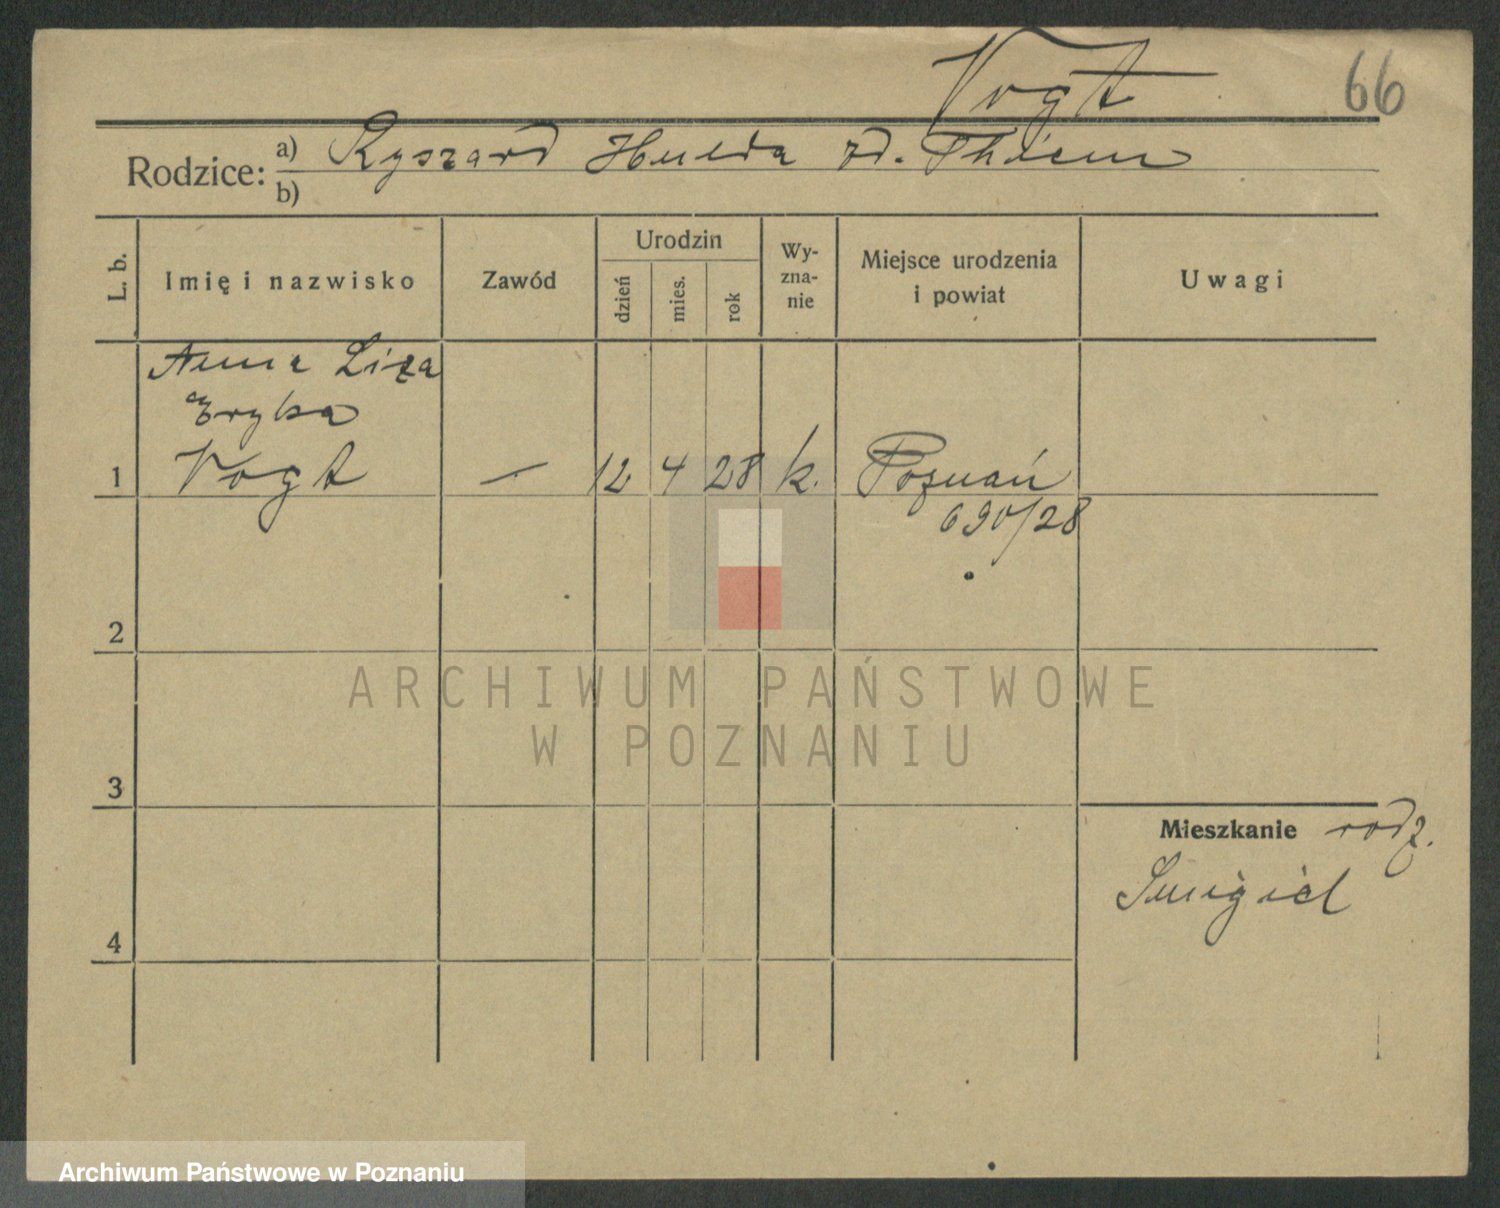 Vogt
66
Rodzice: a) Ryszard Hulda zd. Thiem
b)
L. b.
Imię i nazwisko
Zawód
Urodzin
dzień
mies.
rok
Wy-
zna-
nie
Miejsce urodzenia
i powiat
Uwagi
Anna Liza
Eryka
1 Vogt — 12 4 28 k. Poznań
690/28
2
ARCHIWUM PAŃSTWOWE
W POZNANIU
3
Mieszkanie rodz.
Śmigiel
4
Archiwum Państwowe w Poznaniu